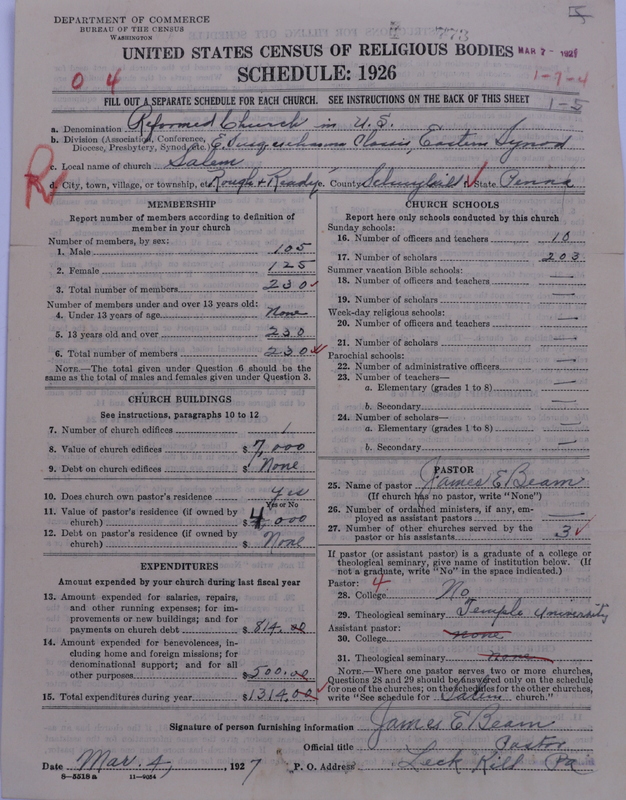 DEPARTMENT OF COMMERCE
BUREAU OF THE CENSUS
WASHINGTON
773
UNITED STATES CENSUS OF RELIGIOUS BODIES
MAR 7 - 192
SCHEDULE: 1926
0 4
1-7-4
FILL OUT A SEPARATE SCHEDULE FOR EACH CHURCH. SEE INSTRUCTIONS ON THE BACK OF THIS SHEET
1-5
a. Denomination Reformed Church in U.S.
b. Division (Association, Conference, Diocese, Presbytery, Synod, etc.) E. Susquehanna Classis, Eastern Synod
c. Local name of church Salem
d. City, town, village, or township, etc. Rough & Ready, County Schuylkill State Penna
MEMBERSHIP
Report number of members according to definition of
member in your church
Number of members, by sex:
1. Male 105
2. Female 125
3. Total number of members 230
Number of members under and over 13 years old:
4. Under 13 years of age None
5. 13 years old and over 230
6. Total number of members 230
NOTE.—The total given under Question 6 should be the
same as the total of males and females given under Question 3.
CHURCH BUILDINGS
See instructions, paragraphs 10 to 12
7. Number of church edifices 1
8. Value of church edifices $ 7,000
9. Debt on church edifices $ None
10. Does church own pastor's residence yes
Yes or No
11. Value of pastor's residence (if owned by
church) $ 4,000
12. Debt on pastor's residence (if owned by
church) $ None
EXPENDITURES
Amount expended by your church during last fiscal year
13. Amount expended for salaries, repairs,
and other running expenses; for im-
provements or new buildings; and for
payments on church debt $ 814.00
14. Amount expended for benevolences, in-
cluding home and foreign missions; for
denominational support; and for all
other purposes $ 500.00
15. Total expenditures during year $ 1314.00
CHURCH SCHOOLS
Report here only schools conducted by this church
Sunday schools:
16. Number of officers and teachers 10
17. Number of scholars 203
Summer vacation Bible schools:
18. Number of officers and teachers —
19. Number of scholars —
Week-day religious schools:
20. Number of officers and teachers —
21. Number of scholars —
Parochial schools:
22. Number of administrative officers —
23. Number of teachers—
a. Elementary (grades 1 to 8) —
b. Secondary —
24. Number of scholars—
a. Elementary (grades 1 to 8) —
b. Secondary —
PASTOR
25. Name of pastor James E Beam
(If church has no pastor, write "None")
26. Number of ordained ministers, if any, em-
ployed as assistant pastors —
27. Number of other churches served by the
pastor or his assistants 3
If pastor (or assistant pastor) is a graduate of a college or
theological seminary, give name of institution below. (If
not a graduate, write "No" in the space indicated.)
Pastor: 4
28. College No
29. Theological seminary Temple University
Assistant pastor:
30. College none
31. Theological seminary none
NOTE.—Where one pastor serves two or more churches,
Questions 28 and 29 should be answered only on the schedule
for one of the churches; on the schedules for the other churches,
write "See schedule for Salem church."
Signature of person furnishing information James E Beam
Official title Pastor
Date Mar. 4, 1927 P. O. Address Leck Kill Pa
8—5518 a 11—9084